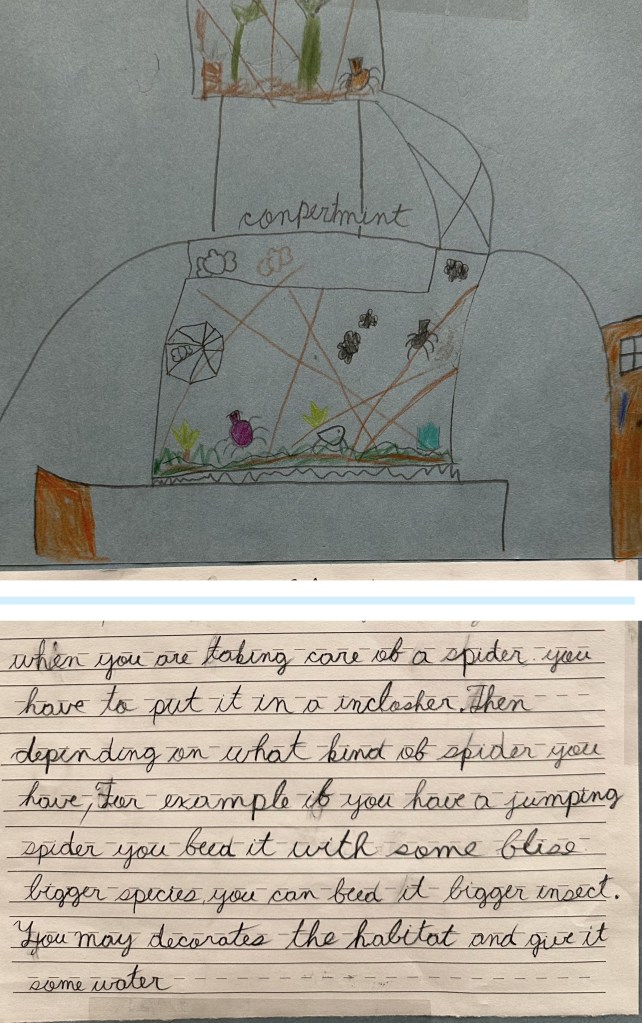 conpertmint
when you are taking care of a spider you
have to put it in a inclosher. Then
depending on what kind of spider you
have, For example if you have a jumping
spider you feed it with some flise
bigger species, you can feed it bigger insect.
You may decorates the habitat and give it
some water